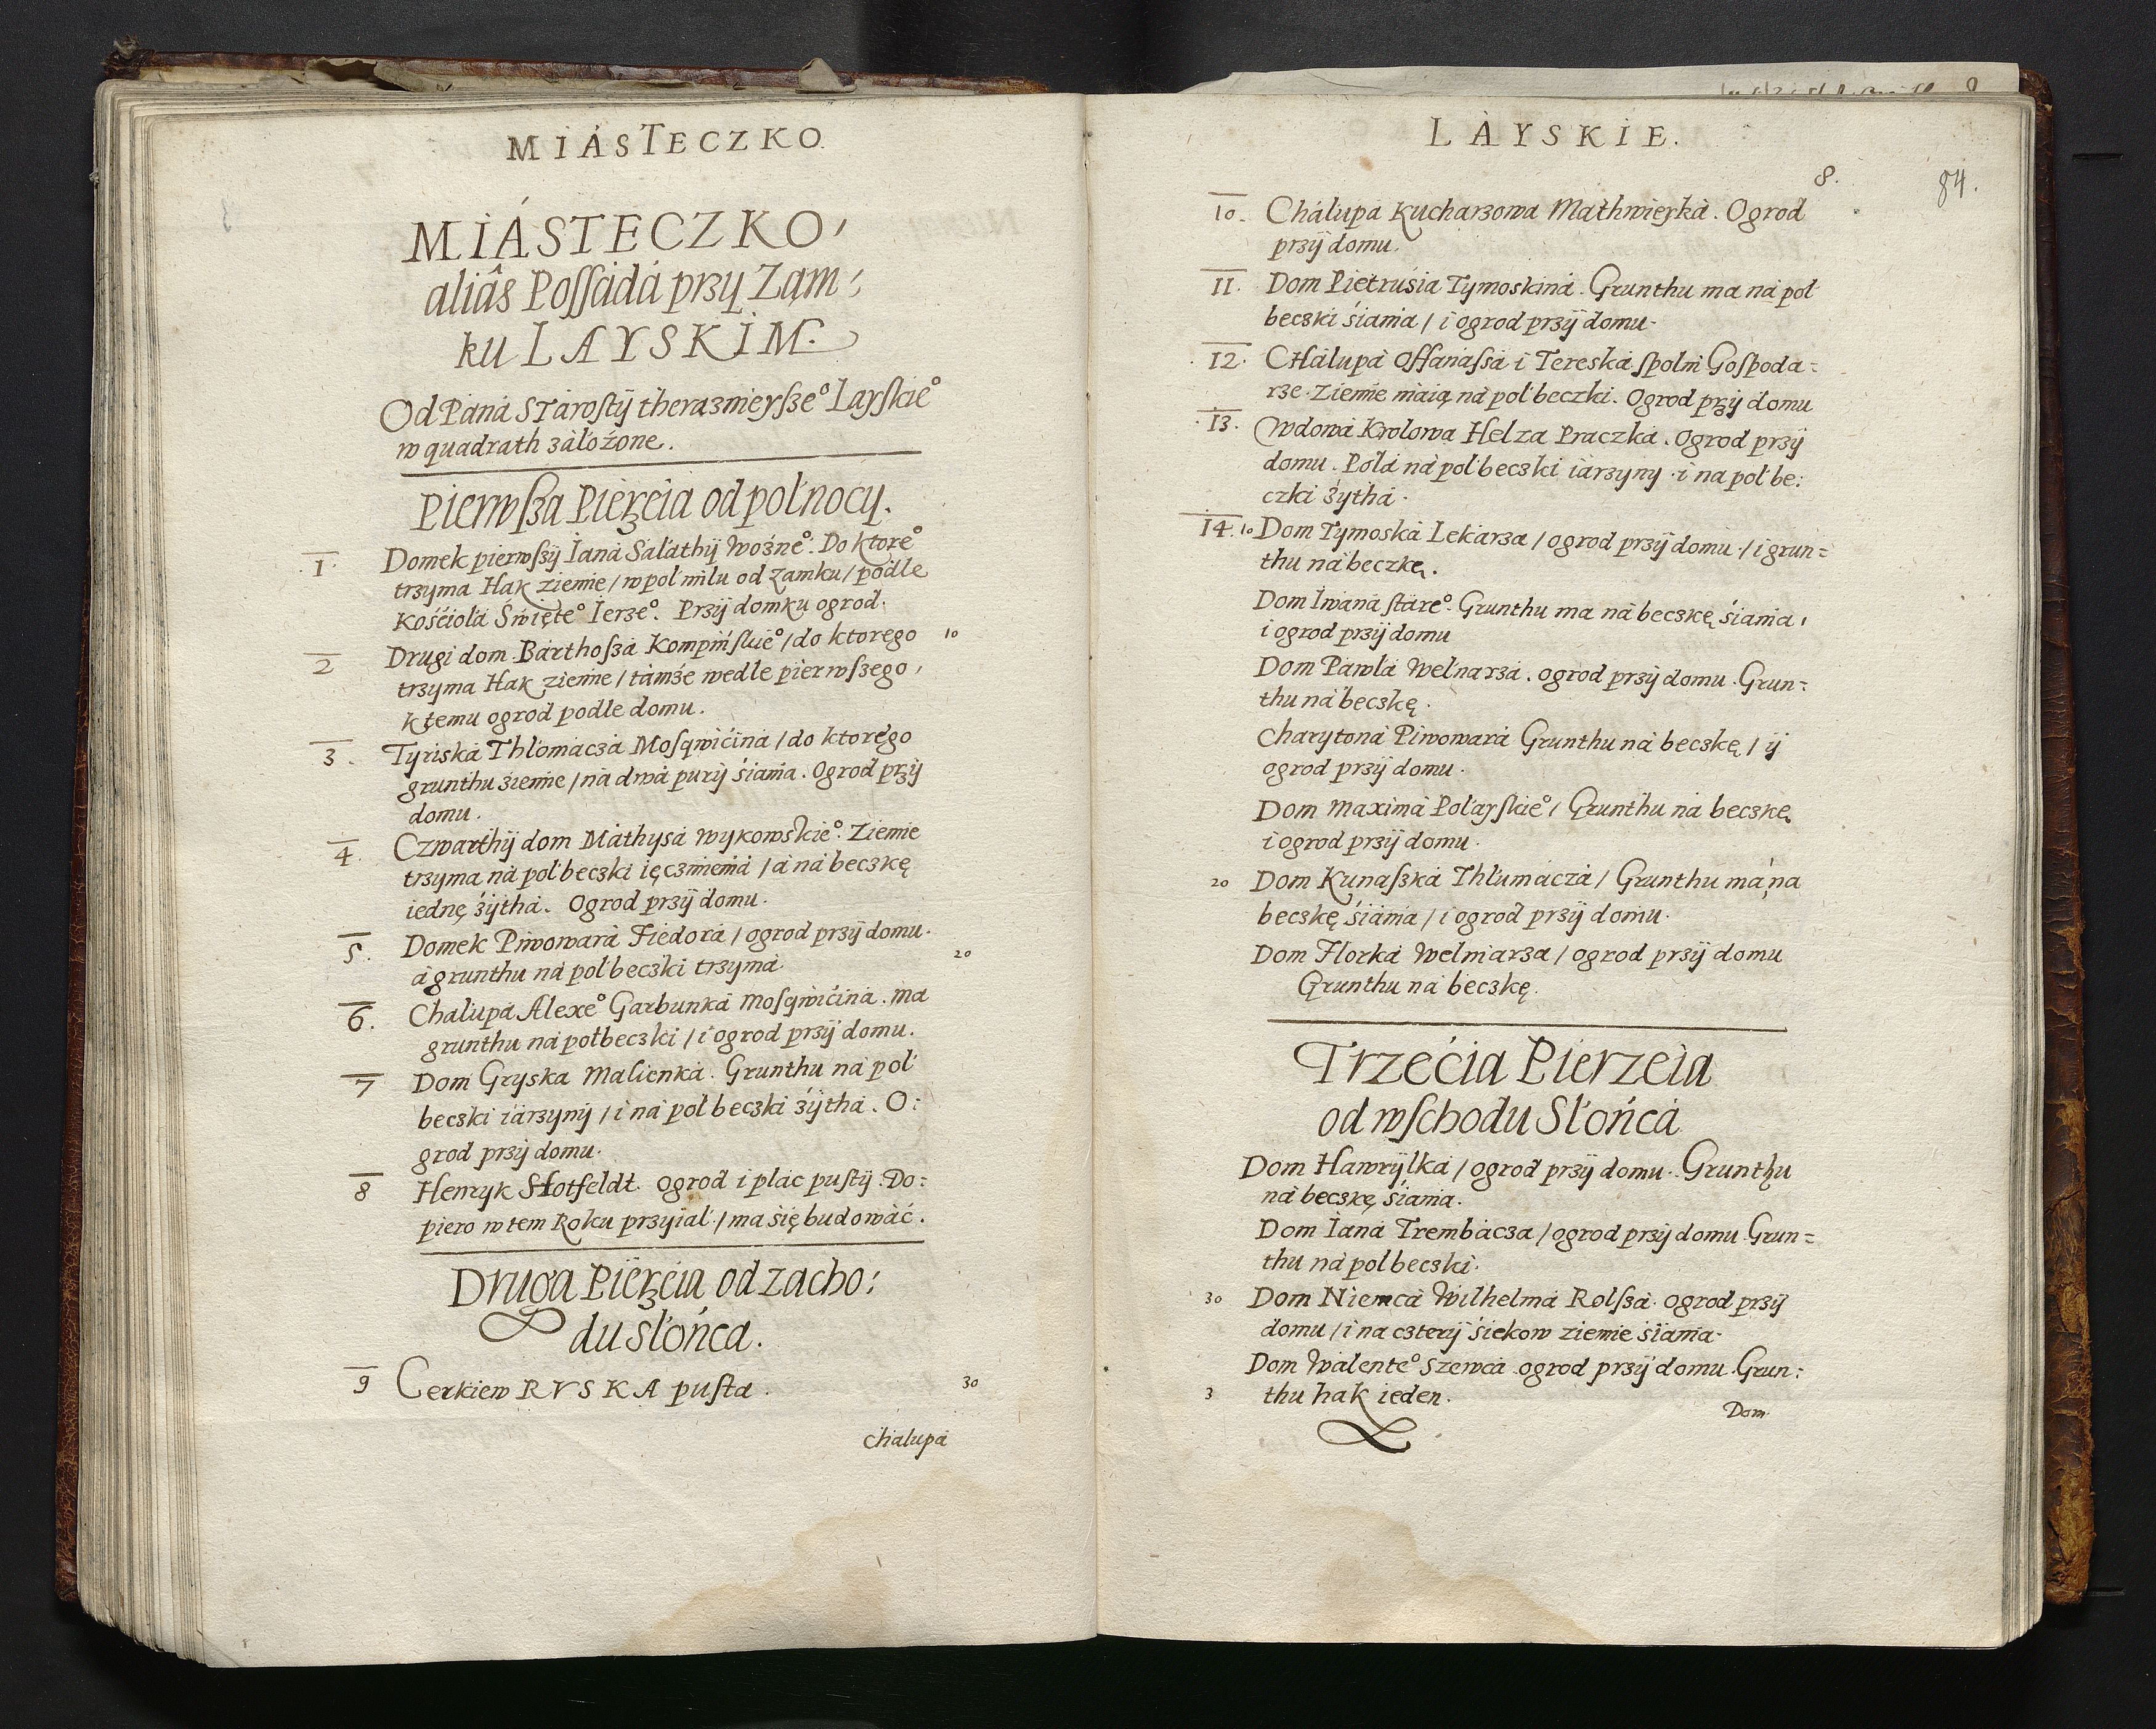 MIÁSTECZKO
MIÁSTECZKO,
aliâs Possádá przy Zam,
ku LAYSKIM.
Od Páná Stárosty therazniejsze° Layskie°
w quadrath záłożone.
Pierwsza Pierzeia od połnocy.
1 Domek pierwszy Janá Sáłáthy Woźne°. Do ktore°
trzyma Hak ziemie / w poł milu od Zamku / podle
Kośćiołá Święte° Jerze°. Przy domku ogrod.
2 Drugi dom Bárthoszá Kompińskie° / do ktorego 10
trzyma Hak ziemie / támże wedle pierwszego,
k temu ogrod podle domu.
3. Tyriská Thłomaczá Mosqwićiná / do ktorego
grunthu ziemie / ná dwá pury śiania. Ogrod przy
domu.
4. Czwarthy dom Máthysá Wykowskie°. Ziemie
trzyma ná poł beczki ięczmieniá / á ná beczkę
iednę żythá. Ogrod przy domu.
5. Domek Piwowará Fiedorá / ogrod przy domu.
á grunthu ná poł beczki trzyma 20
6. Chałupá Alexe° Garbunká Mosqwićiná. ma
grunthu ná poł beczki / i ogrod przy domu.
7 Dom Gryska Malienká. Grunthu ná poł
beczki iárzyny / i ná poł beczki żythá. O:
grod przy domu.
8 Henryk Stotfeldt. ogrod i plác pusty. Do:
piero w tem Roku przyiał / ma się budowáć.
Druga Pierzeia od zacho:
du słońca.
9 Cerkiew RVSKA pusta. 30
Chałupá
LÁYSKIE.
8. 84.
10. Cháłupá Kucharzowa Mathwieyká. Ogrod
przy domu.
11. Dom Pietrusia Tymoskiná. Grunthu ma ná poł
beczki śiania / i ogrod przy domu.
12. CHáłupá Offanássá i Tereská społm Gospoda:
rze. Ziemie máią ná poł beczki. Ogrod przy domu
13. Wdowá Krolowa Helza Praczká. Ogrod przy
domu. Polá ná poł beczki iárzyny. i na poł be:
czki żythá.
14. 10 Dom Tymoská Lekárza / ogrod przy domu / i grun=
thu ná beczkę.
Dom Iwaná stáre°. Grunthu ma ná beczkę śiania,
i ogrod przy domu
Dom Páwłá Wełnarzá. ogrod przy domu. Grun=
thu ná beczkę.
Charytoná Piwowará Grunthu ná beczkę / y
ogrod przy domu.
Dom Maximá Połayskie° / Grunthu ná beczkę
i ogrod przy domu.
20 Dom Kunaszká Thłumáczá / Grunthu má na
beczkę śiania / i ogrod przy domu.
Dom Florká Wełniarza / ogrod przy domu
Grunthu ná beczkę.
Trzećia Pierzeia
od wschodu Słońcá
Dom Hawryłká / ogrod przy domu. Grunthu
ná beczkę śiania.
Dom Janá Trembácza / ogrod przy domu. Grun=
thu ná poł beczki.
30 Dom Niemcá Wilhelmá Rolszá. ogrod przy
domu / i na cztery śiekow ziemie śiania.
Dom Wálente° Szewcá ogrod przy domu. Grun:
3 thu hak ieden.
Dom